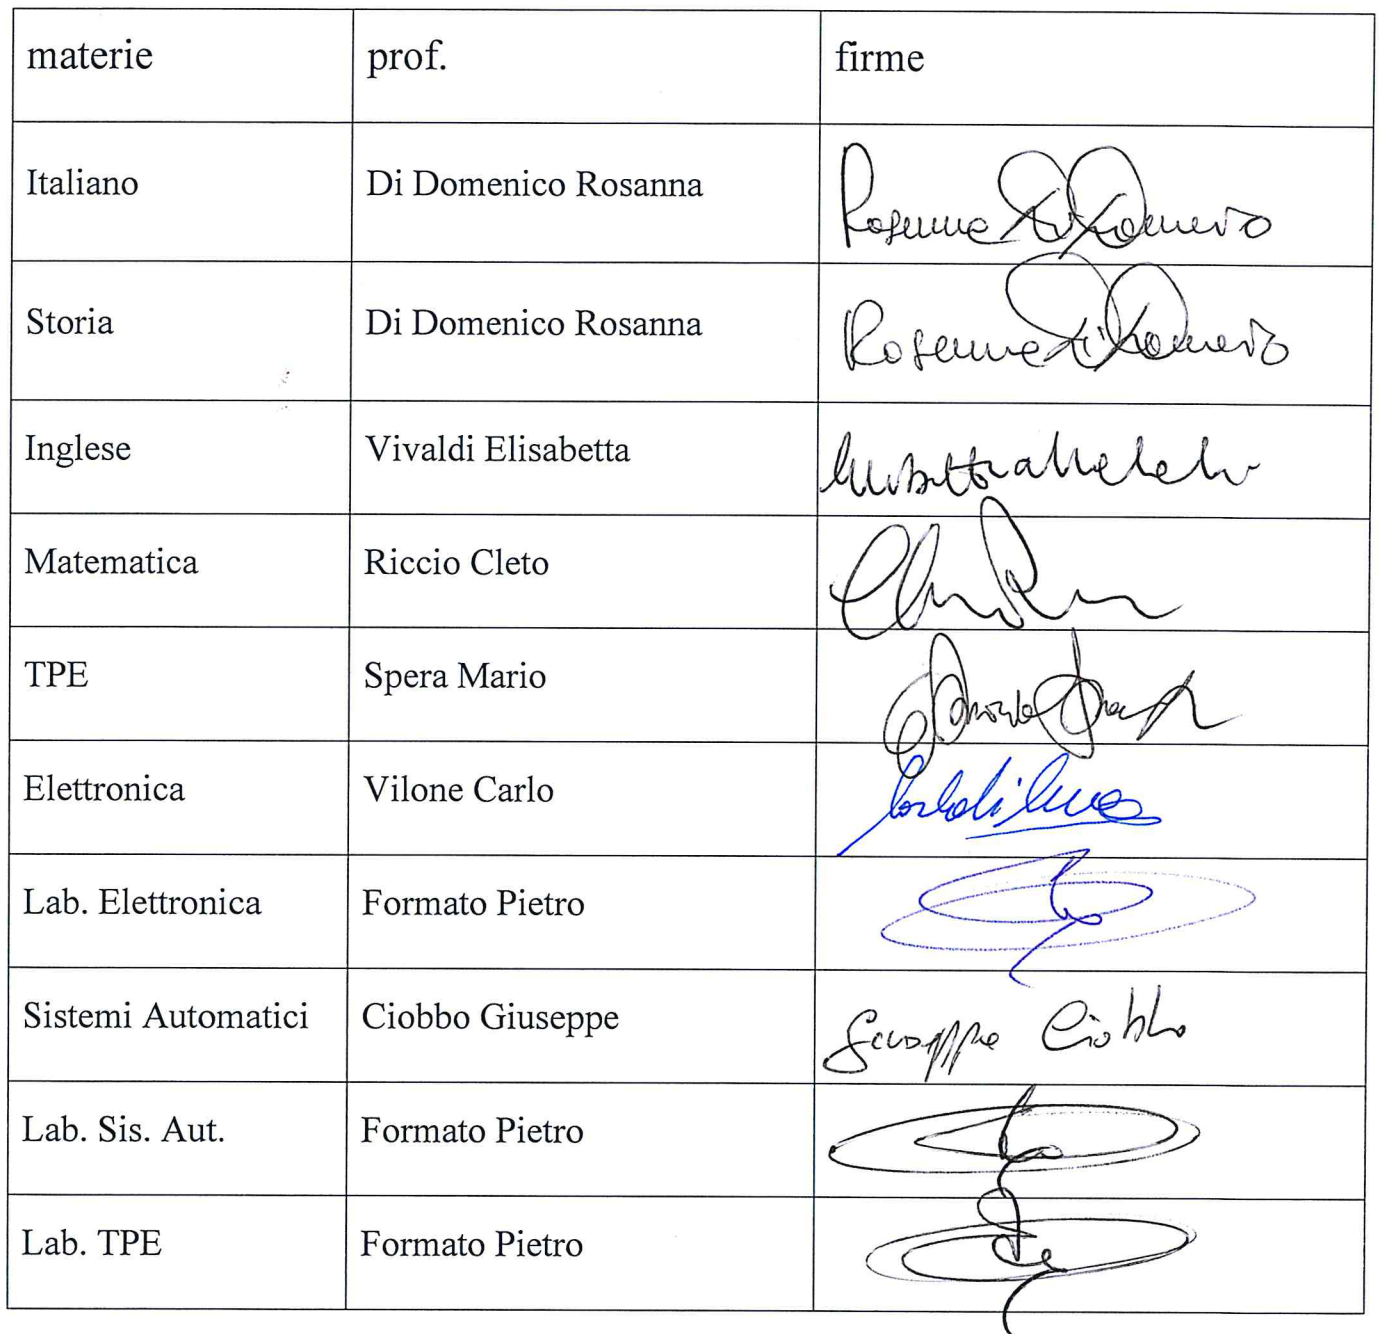 materie prof. firme
Italiano Di Domenico Rosanna Rosanna Di Domenico
Storia Di Domenico Rosanna Rosanna Di Domenico
Inglese Vivaldi Elisabetta
Matematica Riccio Cleto
TPE Spera Mario
Elettronica Vilone Carlo
Lab. Elettronica Formato Pietro
Sistemi Automatici Ciobbo Giuseppe Giuseppe Ciobbo
Lab. Sis. Aut. Formato Pietro
Lab. TPE Formato Pietro